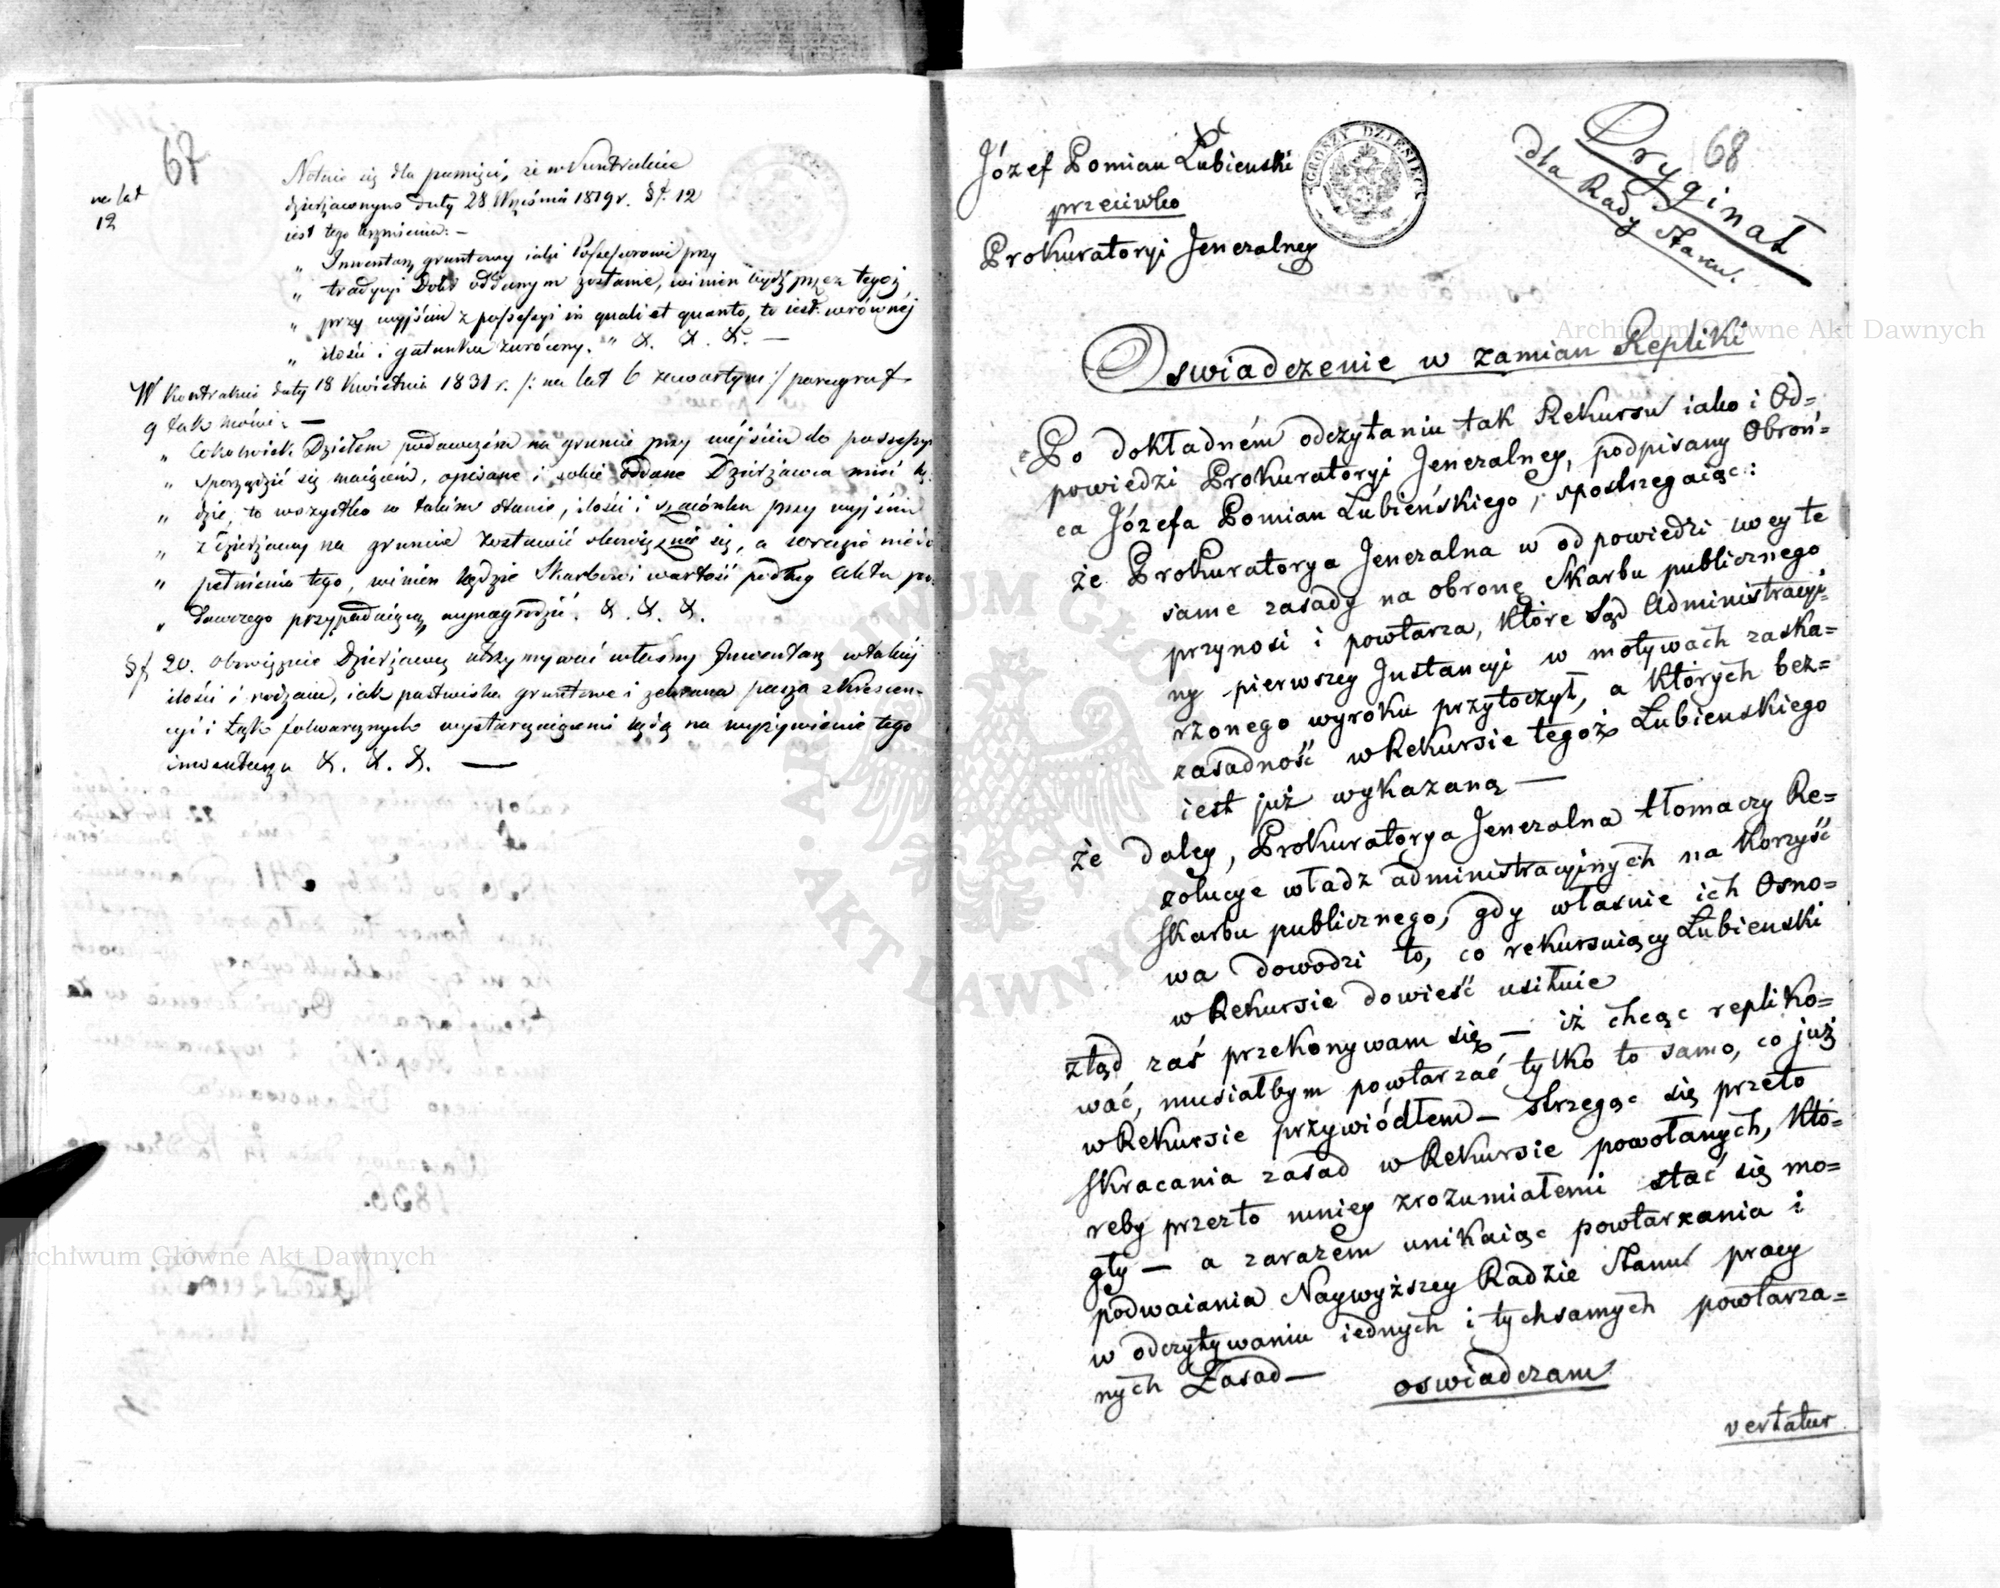 67
na lat
12
Notuie się dla pamięci, że w Kontrakcie
dzierżawnym daty 28 Września 1819 r. §f. 12
iest tego brzmienia: —
„ Inwentarz gruntowy iaki Possessorowi przy
„ tradycyi Dóbr oddanym zostanie, winien bydź przez tegoż
„ przy wyjściu z possessyi in quali et quanto, to iest w równéj
„ ilości i gatunku zwrócony. „ &. &. &. —
W Kontrakcie daty 18 Kwietnia 1831 r. /: na lat 6 zawartym :/ paragraf
9 tak mówi: —
„ Cokolwiek Dziełem podawczém na gruncie przy wejściu do possessyi
„ sporządzić się maiącém, opisane i sobie oddane Dzierżawca mieć bę-
„ dzie, to wszystko w takim stanie, ilości i szacunku przy wyjściu
„ z dzierżawy na gruncie zostawić obowiązuie się, a w razie niedo
„ pełnienia tego, winien będzie Skarbowi wartość podług Aktu po-
„ dawczego przypadaiącą wynagrodzić. &. &. &.
§f 20. obowiązuie Dzierżawcę utrzymywać własny Inwentarz w takiéj
ilości i rodzaiu, iak pastwiska gruntowe i zebrana pasza z Krescen-
cyi i Łąk folwarcznych wystarczaiącemi będą na wyżywienie tego
inwentarza &. &. &. —
68
Oryginał
dla Rady Stanu.
Józef Pomian Łubienski
przeciwko
Prokuratoryi Jeneralney
GROSZY DZIESIĘĆ
Oswiadczenie w zamian Repliki
Po dokładném odczytaniu tak Rekursu iako i Od=
powiedzi Prokuratoryi Jeneralney, podpisany Obroń=
ca Józefa Pomian Łubieńskiego, spostrzegaiąc:
że Prokuratorya Jeneralna w odpowiedzi swey te
same zasady na obronę Skarbu publicznego
przynosi i powtarza, które Sąd Administracyi=
ny pierwszey Instancyi w motywach zaska=
rzonego wyroku przytoczył, a których bez=
zasadność w Rekursie tegoż Łubienskiego
iest już wykazaną —
że daley, Prokuratorya Jeneralna tłomaczy Re=
zolucye władz administracyjnych na korzyść
Skarbu publicznego, gdy własnie ich Osno=
wa dowodzi to, co rekursuiący Łubienski
w Rekursie dowieść usiłuie
ztąd zaś przekonywam się — iż chcąc repliko=
wać, musiałbym powtarzać tylko to samo, co już
w Rekursie przywiódłem — strzegąc się przeto
skracania zasad w Rekursie powołanych, któ=
reby przezto mniey zrozumiałemi stać się mo=
gły — a zarazem unikaiąc powtarzania i
podwaiania Naywyższey Radzie Stanu pracy
w odczytywaniu iednych i tychsamych powtarza=
nych Zasad —
oswiadczam
vertatur
Archiwum Główne Akt Dawnych
Archiwum Główne Akt Dawnych
ARCHIWUM GŁÓWNE
AKT DAWNYCH